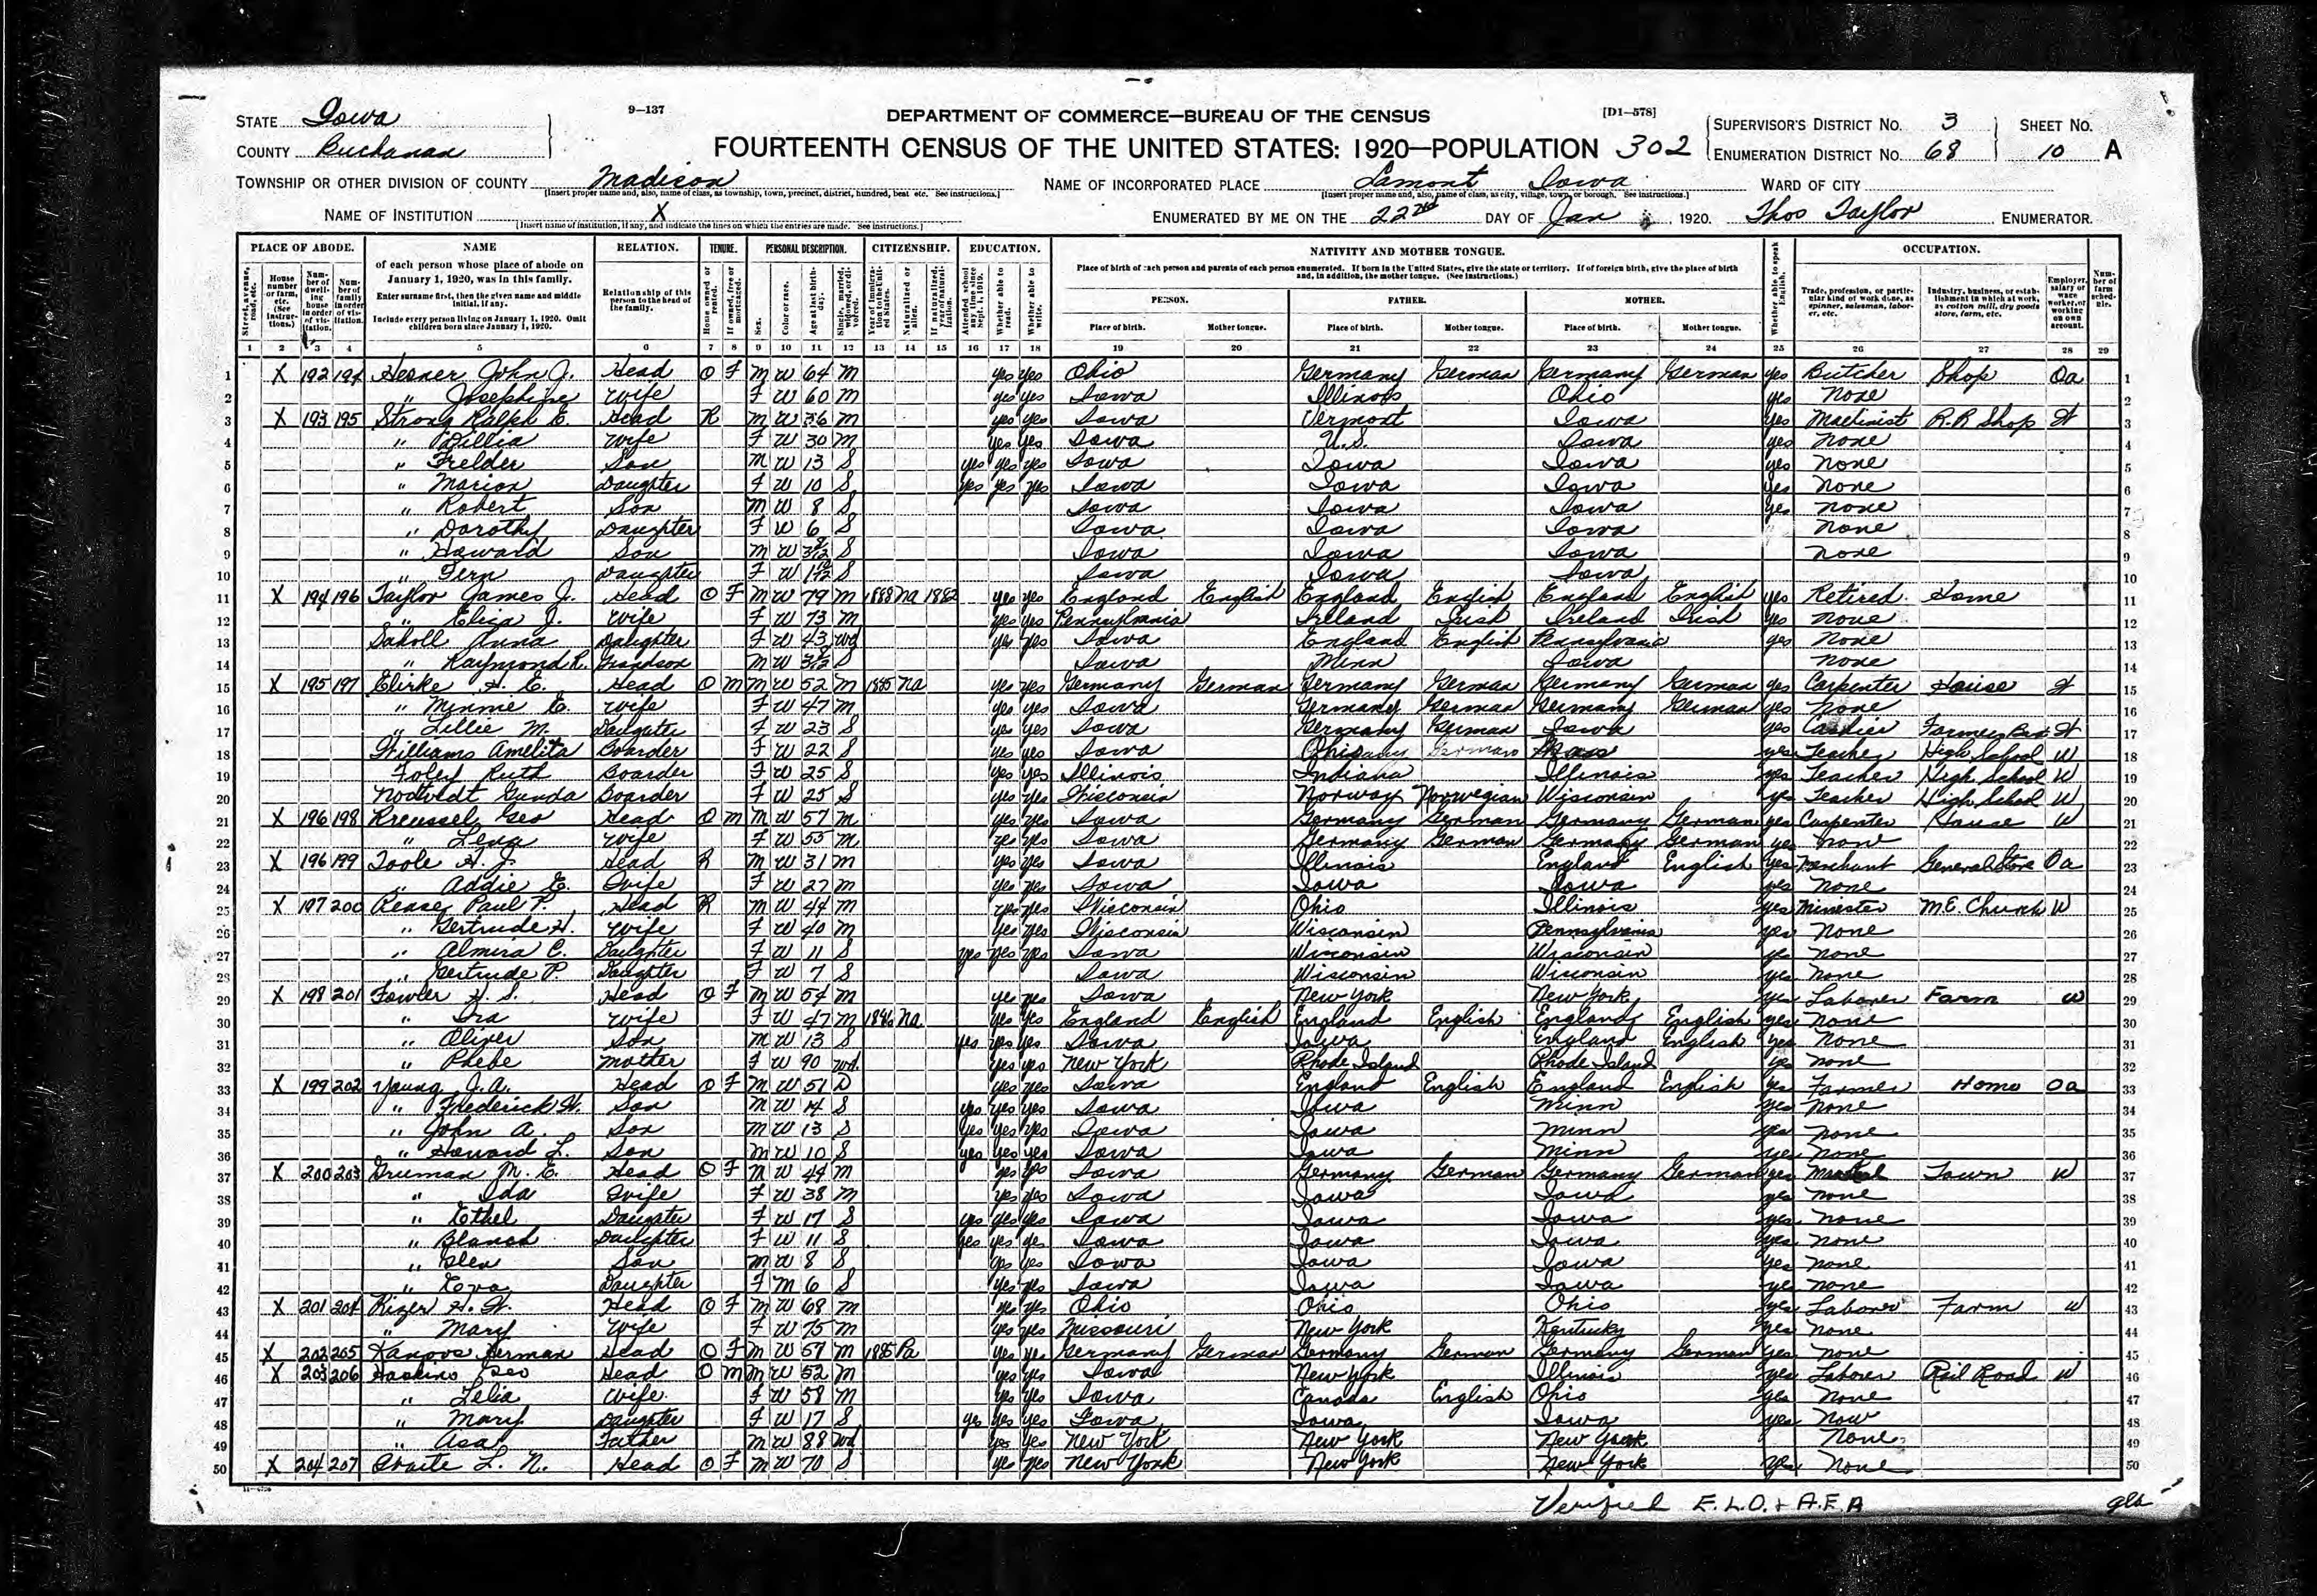 9—137
DEPARTMENT OF COMMERCE—BUREAU OF THE CENSUS
[D1—578]
STATE Iowa
COUNTY Buchanan
FOURTEENTH CENSUS OF THE UNITED STATES: 1920—POPULATION 302
SUPERVISOR'S DISTRICT No. 3
ENUMERATION DISTRICT No. 68
SHEET No. 10 A
TOWNSHIP OR OTHER DIVISION OF COUNTY Madison
[Insert proper name and, also, name of class, as township, town, precinct, district, hundred, beat etc. See instructions.]
NAME OF INCORPORATED PLACE Lamont Iowa
[Insert proper name and, also, name of class, as city, village, town, or borough. See instructions.]
WARD OF CITY
NAME OF INSTITUTION X
[Insert name of institution, if any, and indicate the lines on which the entries are made. See instructions.]
ENUMERATED BY ME ON THE 22nd DAY OF Jan, 1920. Thos Taylor ENUMERATOR.
PLACE OF ABODE. NAME RELATION. TENURE. PERSONAL DESCRIPTION. CITIZENSHIP. EDUCATION. NATIVITY AND MOTHER TONGUE. OCCUPATION.
of each person whose place of abode on January 1, 1920, was in this family.
Enter surname first, then the given name and middle initial, if any.
Include every person living on January 1, 1920. Omit children born since January 1, 1920.
Relationship of this person to the head of the family.
Place of birth of each person and parents of each person enumerated. If born in the United States, give the state or territory. If of foreign birth, give the place of birth and, in addition, the mother tongue. (See instructions.)
PERSON. FATHER. MOTHER.
Place of birth. Mother tongue. Place of birth. Mother tongue. Place of birth. Mother tongue.
1 2 3 4 5 6 7 8 9 10 11 12 13 14 15 16 17 18 19 20 21 22 23 24 25 26 27 28 29
1 X 192 194 John J. Head O F M W 64 M yes yes Ohio Germany German Germany German yes Butcher Shop Oa 1
2 " Josephine Wife F W 60 M yes yes Iowa Illinois Ohio yes None 2
3 X 193 195 Strong Ralph E. Head R M W 36 M yes yes Iowa Vermont Iowa yes Machinist R.R Shop W 3
4 " Wife F W 30 M yes yes Iowa U.S. Iowa yes None 4
5 " Son M W 13 S yes yes yes Iowa Iowa Iowa yes None 5
6 " Marion Daughter F W 10 S yes yes yes Iowa Iowa Iowa yes None 6
7 " Robert Son M W 8 S Iowa Iowa Iowa yes None 7
8 " Dorothy Daughter F W 6 S Iowa Iowa Iowa None 8
9 " Howard Son M W S Iowa Iowa Iowa None 9
10 " Fern Daughter F W S Iowa Iowa Iowa 10
11 X 194 196 Taylor James J. Head O F M W 79 M 1883 Na 1882 yes yes England English England English England English yes Retired Home 11
12 " Eliza J. Wife F W 73 M yes yes Pennsylvania Ireland Irish Ireland Irish yes None 12
13 Anna Daughter F W 43 Wd yes yes Iowa England English Pennsylvania yes None 13
14 " Raymond R. Grandson M W S Iowa Minn Iowa None 14
15 X 195 197 H. E. Head O M M W 52 M 1885 Na yes yes Germany German Germany German Germany German yes Carpenter House W 15
16 " Minnie E. Wife F W 47 M yes yes Iowa Germany German Germany German yes None 16
17 " Lillie M. Daughter F W 23 S yes yes Iowa Germany German Iowa yes Cashier Farmers W 17
18 Williams Amelita Boarder F W 22 S yes yes Iowa Ohio yes Teacher High School W 18
19 Foley Ruth Boarder F W 25 S yes yes Illinois Indiana Illinois yes Teacher High School W 19
20 Nodtvedt Gunda Boarder F W 25 S yes yes Wisconsin Norway Norwegian Wisconsin yes Teacher High School W 20
21 X 196 198 Kreussel Geo Head O M M W 57 M yes yes Iowa Germany German Germany German yes Carpenter House W 21
22 " Lena Wife F W 55 M yes yes Iowa Germany German Germany German yes None 22
23 X 196 199 Toole H. J. Head R M W 31 M yes yes Iowa Illinois England English yes Merchant General Store Oa 23
24 " Addie E. Wife F W 27 M yes yes Iowa Iowa Iowa yes None 24
25 X 197 200 Pease Paul P. Head R M W 44 M yes yes Wisconsin Ohio Illinois yes Minister M.E. Church W 25
26 " Gertrude H. Wife F W 40 M yes yes Wisconsin Wisconsin Pennsylvania yes None 26
27 " Almira C. Daughter F W 11 S yes yes yes Iowa Wisconsin Wisconsin yes None 27
28 " Gertrude P. Daughter F W 7 S Iowa Wisconsin Wisconsin yes None 28
29 X 198 201 Fowler H. S. Head O F M W 54 M yes yes Iowa New York New York yes Laborer Farm W 29
30 " Ira Wife F W 47 M 1886 Na yes yes England English England English England English yes None 30
31 " Oliver Son M W 13 S yes yes yes Iowa Iowa England English yes None 31
32 " Phebe Mother F W 90 Wd. yes yes New York Rhode Island Rhode Island yes None 32
33 X 199 202 Young J. A. Head O F M W 51 D yes yes Iowa England English England English yes Farmer Home Oa 33
34 " Frederick W. Son M W 14 S yes yes yes Iowa Iowa Minn yes None 34
35 " John A. Son M W 13 S yes yes yes Iowa Iowa Minn yes None 35
36 " Howard L. Son M W 10 S yes yes yes Iowa Iowa Minn yes None 36
37 X 200 203 Gruman M. E. Head O F M W 49 M yes yes Iowa Germany German Germany German yes Town W 37
38 " Ida Wife F W 38 M yes yes Iowa Iowa Iowa yes None 38
39 " Ethel Daughter F W 17 S yes yes yes Iowa Iowa Iowa yes None 39
40 " Blanch Daughter F W 11 S yes yes yes Iowa Iowa Iowa yes None 40
41 " Glen Son M W 8 S yes yes Iowa Iowa Iowa yes None 41
42 " Daughter F M 6 S yes yes Iowa Iowa Iowa yes None 42
43 X 201 204 Kizer H. W. Head O F M W 68 M yes yes Ohio Ohio Ohio yes Laborer Farm W 43
44 " Mary Wife F W 75 M yes yes Missouri New York Kentucky yes None 44
45 X 202 205 Herman Head O F M W 57 M 1885 Pa yes yes Germany German Germany German Germany German yes None 45
46 X 203 206 Haskins Geo Head O M M W 52 M yes yes Iowa New York Illinois yes Laborer Rail Road W 46
47 " Lelia Wife F W 58 M yes yes Iowa Canada English Ohio yes None 47
48 " Mary Daughter F W 17 S yes yes yes Iowa Iowa Iowa yes None 48
49 " Asa Father M W 88 Wd yes yes New York New York New York None 49
50 X 204 207 L. N. Head O F M W 70 S yes yes New York New York New York yes None 50
Verified E.L.O. + A.F.A